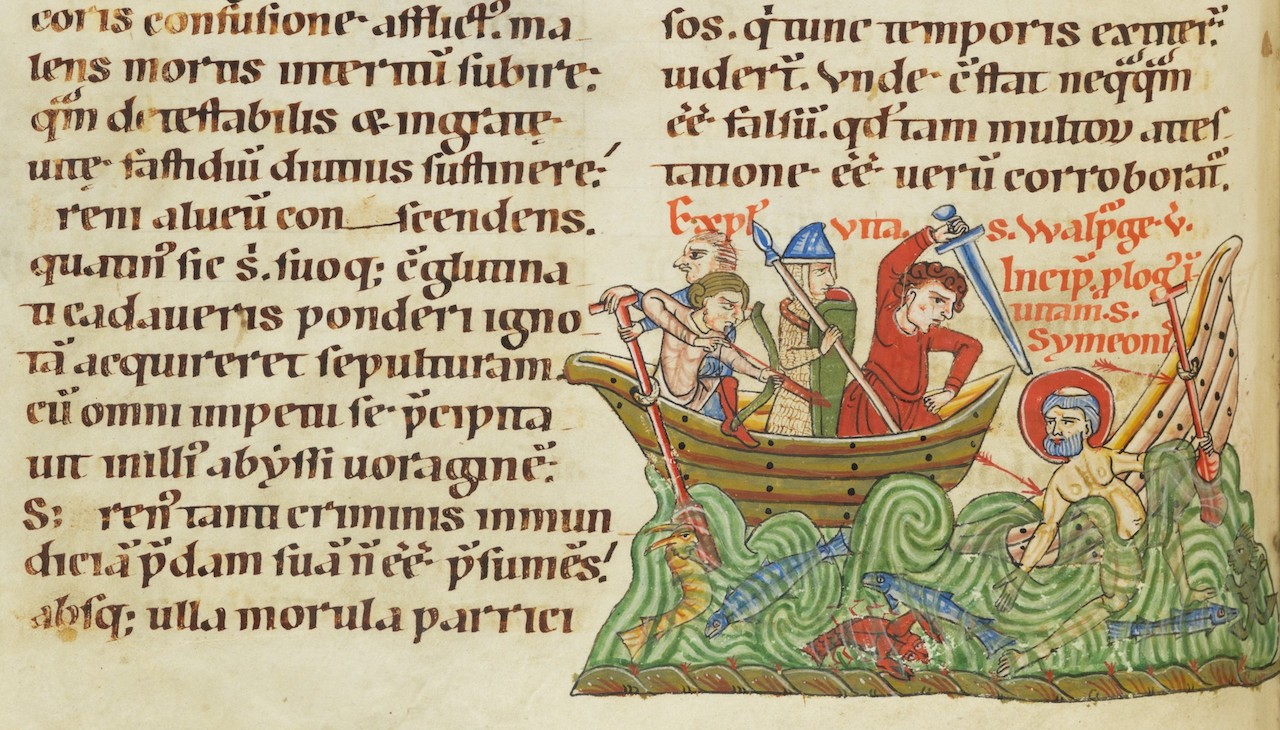 coris confusione· afflict᷒. ma
lens mortis interitũ subire:
qm̃ detestabilis & ingratę
uitę· fastidiũ diutius sustinere:
reni alueũ con scendens.
quatin᷒ sic s̓. suoq; c̃glutina
ti cadaueris ponderi igno
tã acquireret sepulturam.
cũ omni impetu se· p̃cipita
uit in illi᷒ abẏssi uoraginẽ:
S; ren᷒ tanti criminis inmun
diciã p̃dam suã ñ ẽẽ p̃sumẽs!
absq; ulla morula parrici
sos. q̓ tunc temporis extiter̃.
uidert̃. Vnde· c̃stat neqq̃m
ẽẽ· falsũ. qđ tam multoꝝ attes
tatione· ẽẽ· uerũ corroborat̃.
Expl̓ vita. s. Walp̃ge· v̓.
Incip̃. plog᷒ ĩ
uitam. s.
Symeoni